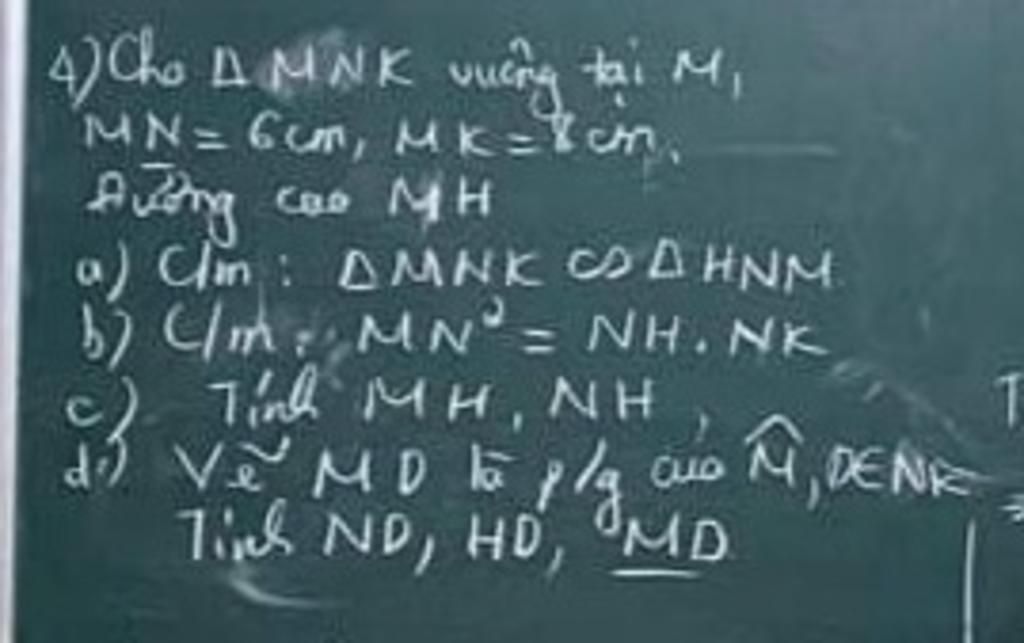 4) Cho Δ MNK vuông tại M,
MN = 6cm, MK = 8cm.
Đường cao MH
a) C/m : Δ MNK ∽ Δ HNM
b) C/m : MN² = NH . NK
c) Tính MH, NH,
d) Vẽ MD là p/g của M̂, D∈NK
Tính ND, HD, MD